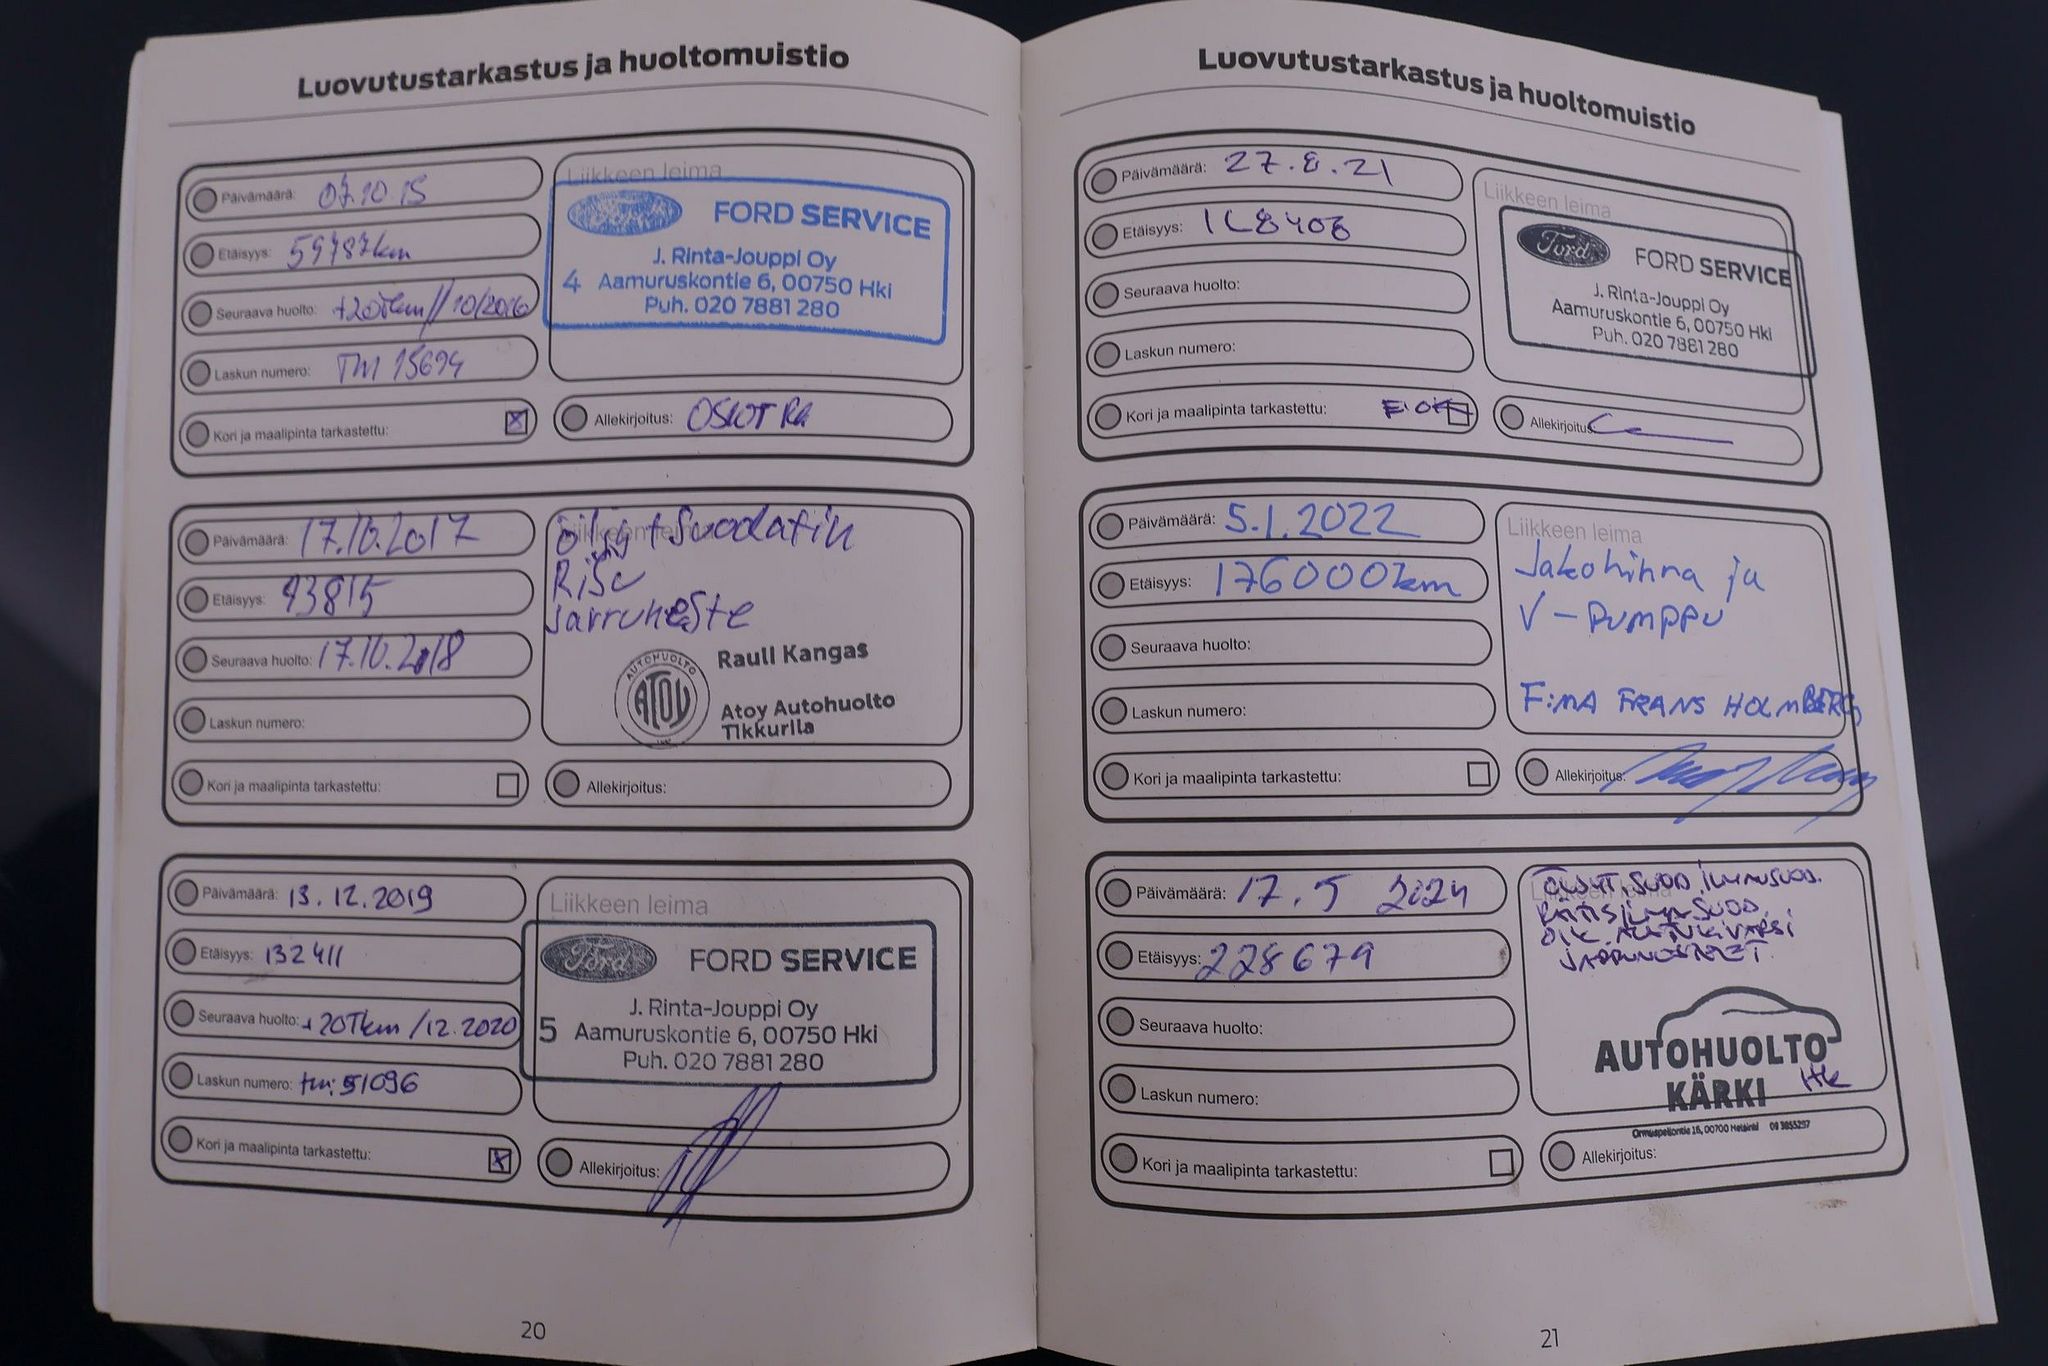 Luovutustarkastus ja huoltomuistio
Päivämäärä: 07.10.15
Etäisyys: 59787km
Seuraava huolto: +20Tkm//10/2016
Laskun numero: TM 15694
Kori ja maalipinta tarkastettu:
Liikkeen leima
Ford
FORD SERVICE
J. Rinta-Jouppi Oy
4 Aamuruskontie 6, 00750 Hki
Puh. 020 7881 280
Allekirjoitus:
Päivämäärä: 17.10.2017
Etäisyys: 93815
Seuraava huolto: 17.10.2018
Laskun numero:
Kori ja maalipinta tarkastettu:
Liikkeen leima
öljy + Suodatin
Jarruneste
AUTOHUOLTO
ATOY
Rauli Kangas
Atoy Autohuolto
Tikkurila
Allekirjoitus:
Päivämäärä: 13.12.2019
Etäisyys: 132411
Seuraava huolto: +20Tkm/12.2020
Laskun numero: tm: 51096
Kori ja maalipinta tarkastettu:
Liikkeen leima
Ford
FORD SERVICE
J. Rinta-Jouppi Oy
5 Aamuruskontie 6, 00750 Hki
Puh. 020 7881 280
Allekirjoitus:
20
Luovutustarkastus ja huoltomuistio
Päivämäärä: 27.8.21
Etäisyys:
Seuraava huolto:
Laskun numero:
Kori ja maalipinta tarkastettu:
Liikkeen leima
Ford
FORD SERVICE
J. Rinta-Jouppi Oy
Aamuruskontie 6, 00750 Hki
Puh. 020 7881 280
Allekirjoitus:
Päivämäärä: 5.1.2022
Etäisyys: 176000km
Seuraava huolto:
Laskun numero:
Kori ja maalipinta tarkastettu:
Liikkeen leima
Jakohihna ja
V-Pumppu
F:MA FRANS HOLMBERG
Allekirjoitus:
Päivämäärä: 17.5 2024
Etäisyys: 228679
Seuraava huolto:
Laskun numero:
Kori ja maalipinta tarkastettu:
ÖLJYT, SUOD, ILMASUOD.
RAITISILMASUOD.
OIK. ALATUKIVARSI
JARRUNESTEET.
AUTOHUOLTO
KÄRKI
HK
Ormuspellontie 16, 00700 Helsinki 09 3855297
Allekirjoitus:
21